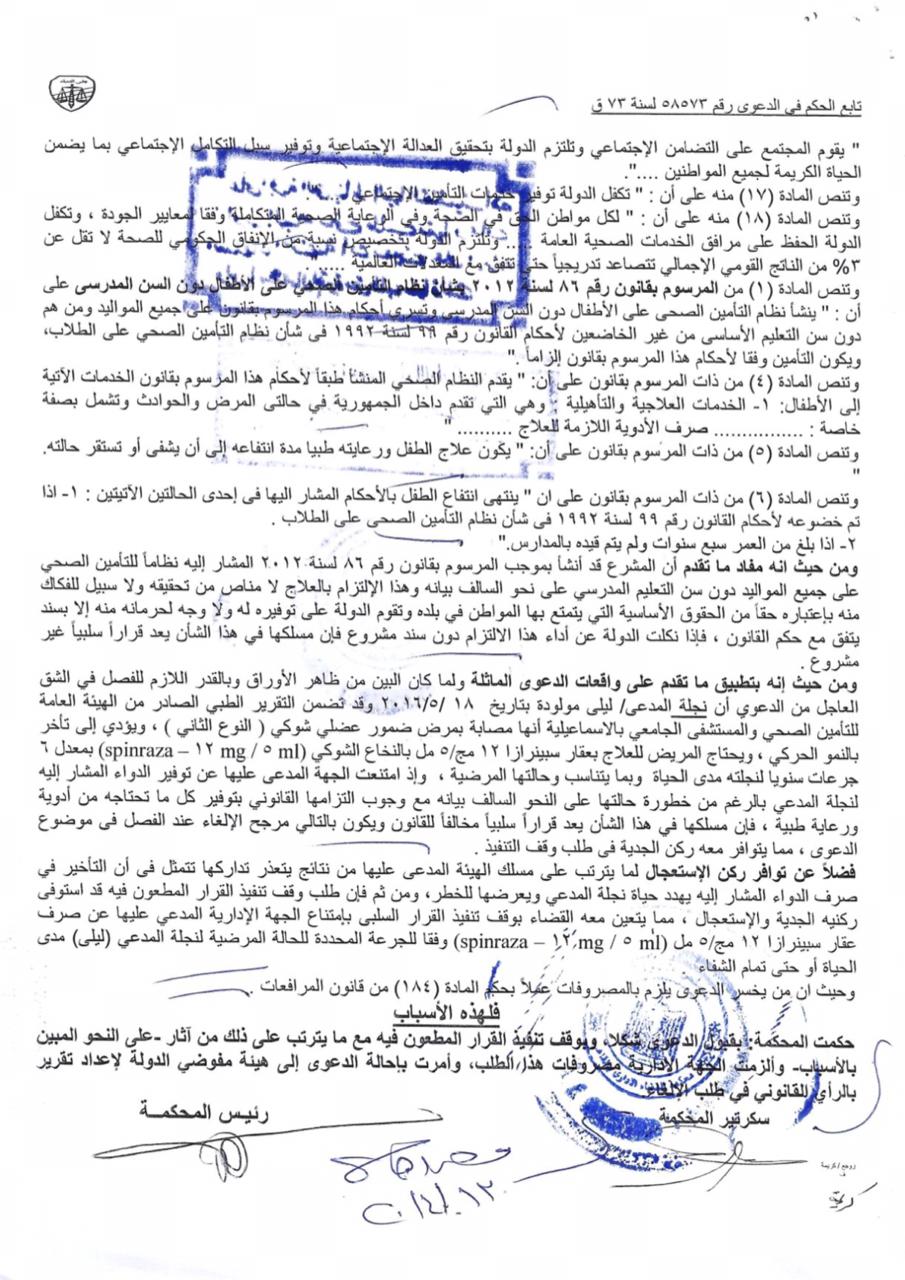 تابع الحكم في الدعوى رقم ٥٨٥٧٣ لسنة ٧٣ ق
" يقوم المجتمع على التضامن الإجتماعي وتلتزم الدولة بتحقيق العدالة الإجتماعية وتوفير سبل التكامل الإجتماعي بما يضمن
الحياة الكريمة لجميع المواطنين ....".
وتنص المادة (١٧) منه على أن : " تكفل الدولة توفير خدمات التأمين الإجتماعي ...
وتنص المادة (١٨) منه على أن : " لكل مواطن الحق في الصحة وفي الرعاية الصحية المتكاملة وفقا لمعايير الجودة ، وتكفل
الدولة الحفظ على مرافق الخدمات الصحية العامة ..... وتلتزم الدولة بتخصيص نسبة من الإنفاق الحكومي للصحة لا تقل عن
٣% من الناتج القومي الإجمالي تتصاعد تدريجياً حتى تتفق مع المعدلات العالمية
وتنص المادة (١) من المرسوم بقانون رقم ٨٦ لسنة ٢٠١٢ بشأن نظام التأمين الصحي على الأطفال دون السن المدرسى على
أن : " ينشأ نظام التأمين الصحى على الأطفال دون السن المدرسي وتسرى أحكام هذا المرسوم بقانون على جميع المواليد ومن هم
دون سن التعليم الأساسى من غير الخاضعين لأحكام القانون رقم ٩٩ لسنة ١٩٩٢ فى شأن نظام التأمين الصحى على الطلاب،
ويكون التأمين وفقا لأحكام هذا المرسوم بقانون إلزاماً ."
وتنص المادة (٤) من ذات المرسوم بقانون على أن: " يقدم النظام الصحي المنشأ طبقاً لأحكام هذا المرسوم بقانون الخدمات الآتية
إلى الأطفال: ١- الخدمات العلاجية والتأهيلية : وهي التي تقدم داخل الجمهورية في حالتى المرض والحوادث وتشمل بصفة
خاصة : ................ صرف الأدوية اللازمة للعلاج .......... "
وتنص المادة (٥) من ذات المرسوم بقانون على أن: " يكون علاج الطفل ورعايته طبيا مدة انتفاعه إلى أن يشفى أو تستقر حالته.
"
وتنص المادة (٦) من ذات المرسوم بقانون على ان " ينتهى انتفاع الطفل بالأحكام المشار اليها فى إحدى الحالتين الآتيتين : ١- اذا
تم خضوعه لأحكام القانون رقم ٩٩ لسنة ١٩٩٢ فى شأن نظام التأمين الصحى على الطلاب .
٢- اذا بلغ من العمر سبع سنوات ولم يتم قيده بالمدارس."
ومن حيث انه مفاد ما تقدم أن المشرع قد أنشأ بموجب المرسوم بقانون رقم ٨٦ لسنة ٢٠١٢ المشار إليه نظاماً للتأمين الصحي
على جميع المواليد دون سن التعليم المدرسي على نحو السالف بيانه وهذا الإلتزام بالعلاج لا مناص من تحقيقه ولا سبيل للفكاك
منه بإعتباره حقاً من الحقوق الأساسية التي يتمتع بها المواطن في بلده وتقوم الدولة على توفيره له ولا وجه لحرمانه منه إلا بسند
يتفق مع حكم القانون ، فإذا نكلت الدولة عن أداء هذا الالتزام دون سند مشروع فإن مسلكها في هذا الشأن يعد قراراً سلبياً غير
مشروع .
ومن حيث إنه بتطبيق ما تقدم على واقعات الدعوى الماثلة ولما كان البين من ظاهر الأوراق وبالقدر اللازم للفصل في الشق
العاجل من الدعوي أن نجلة المدعى/ ليلى مولودة بتاريخ ١٨ /٢٠١٦/٥ وقد تضمن التقرير الطبي الصادر من الهيئة العامة
للتأمين الصحي والمستشفى الجامعي بالاسماعيلية أنها مصابة بمرض ضمور عضلي شوكي ( النوع الثاني ) ، ويؤدي إلى تأخر
بالنمو الحركي ، ويحتاج المريض للعلاج بعقار سبينرازا ١٢ مج/٥ مل بالنخاع الشوكي (spinraza – ١٢ mg / ٥ ml) بمعدل ٦
جرعات سنويا لنجلته مدى الحياة وبما يتناسب وحالتها المرضية ، وإذ امتنعت الجهة المدعى عليها عن توفير الدواء المشار إليه
لنجلة المدعي بالرغم من خطورة حالتها على النحو السالف بيانه مع وجوب التزامها القانوني بتوفير كل ما تحتاجه من أدوية
ورعاية طبية ، فإن مسلكها في هذا الشأن يعد قراراً سلبياً مخالفاً للقانون ويكون بالتالي مرجح الإلغاء عند الفصل فى موضوع
الدعوى ، مما يتوافر معه ركن الجدية في طلب وقف التنفيذ .
فضلاً عن توافر ركن الإستعجال لما يترتب على مسلك الهيئة المدعى عليها من نتائج يتعذر تداركها تتمثل فى أن التأخير في
صرف الدواء المشار إليه يهدد حياة نجلة المدعي ويعرضها للخطر، ومن ثم فإن طلب وقف تنفيذ القرار المطعون فيه قد استوفى
ركنيه الجدية والإستعجال ، مما يتعين معه القضاء بوقف تنفيذ القرار السلبى بإمتناع الجهة الإدارية المدعي عليها عن صرف
عقار سبينرازا ١٢ مج/٥ مل (spinraza – ١٢ mg / ٥ ml) وفقا للجرعة المحددة للحالة المرضية لنجلة المدعي (ليلى) مدى
الحياة أو حتى تمام الشفاء .
وحيث ان من يخسر الدعوى يلزم بالمصروفات عملاً بحكم المادة (١٨٤) من قانون المرافعات .
فلهذه الأسباب
حكمت المحكمة: بقبول الدعوى شكلا، وبوقف تنفيذ القرار المطعون فيه مع ما يترتب على ذلك من آثار -على النحو المبين
بالأسباب- وألزمت الجهة الادارية مصروفات هذا الطلب، وأمرت بإحالة الدعوى إلى هيئة مفوضي الدولة لإعداد تقرير
بالرأي القانوني في طلب الإلغاء
سكرتير المحكمة رئيس المحكمة